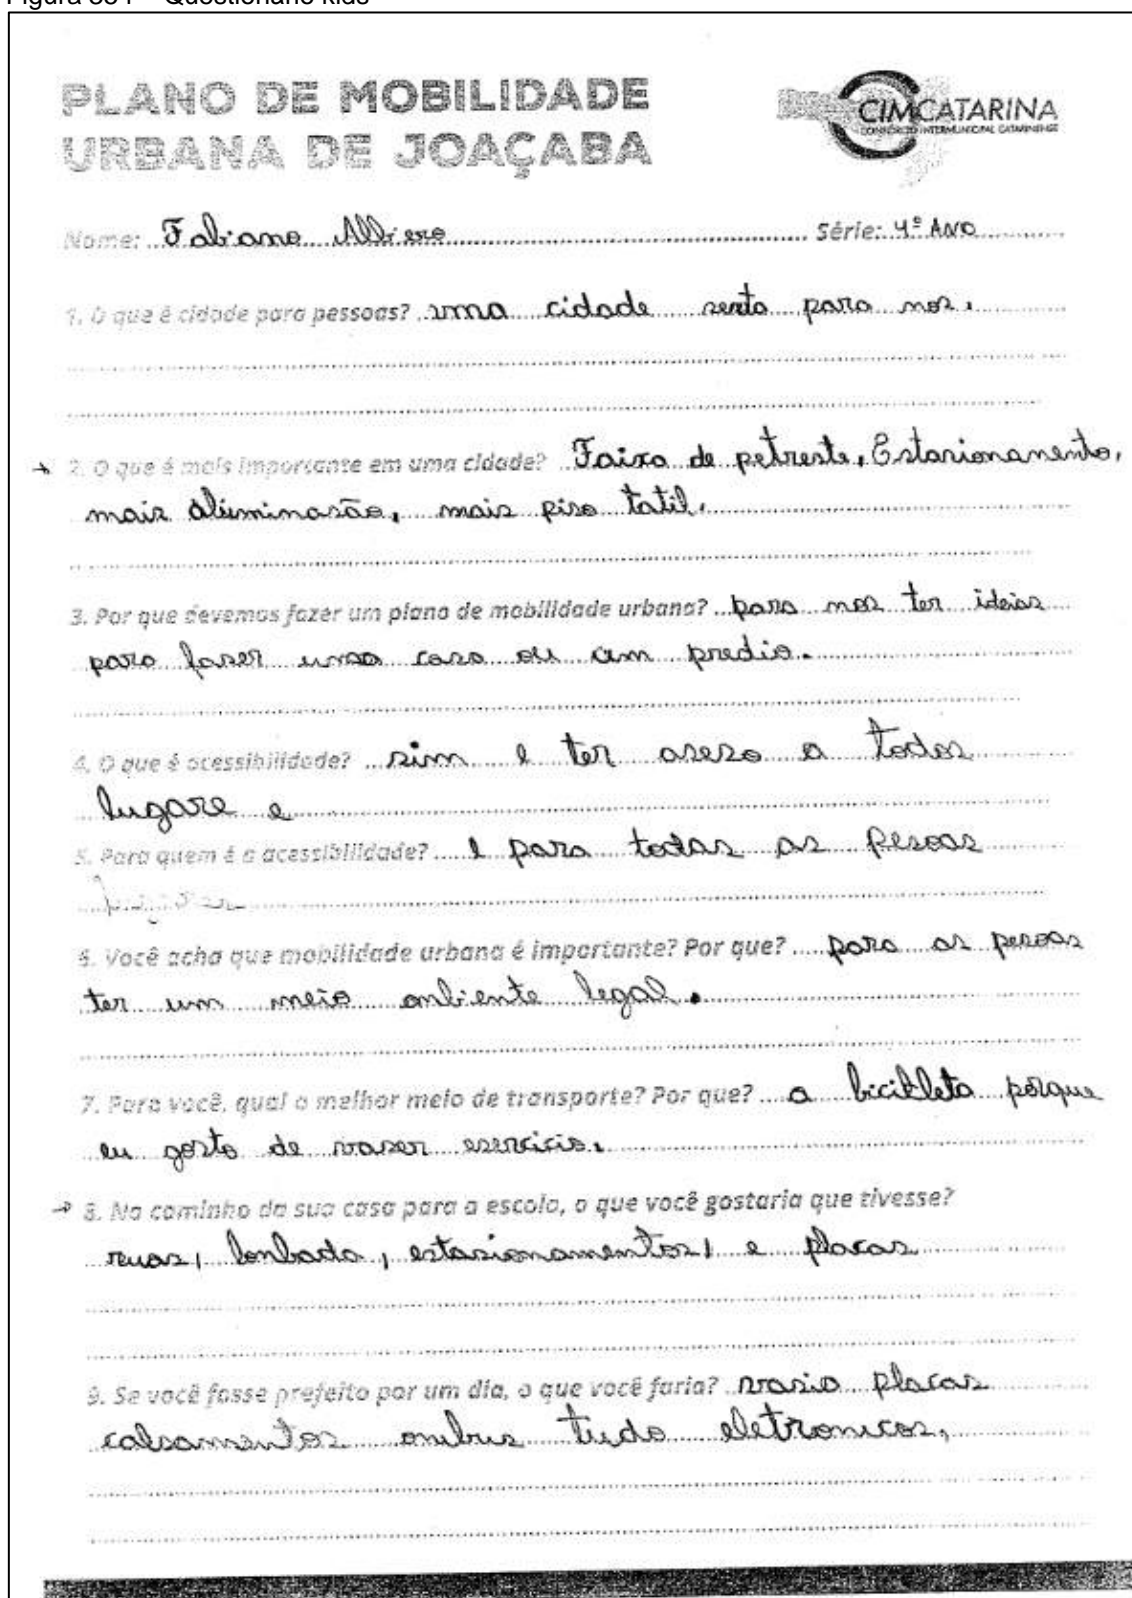 Questionário kids
PLANO DE MOBILIDADE
URBANA DE JOAÇABA
CIMCATARINA
CONSÓRCIO INTERMUNICIPAL CATARINENSE
Nome: Fabiano Albiero Série: 4º Ano
1. O que é cidade para pessoas? uma cidade serta para nos.
2. O que é mais importante em uma cidade? Faixa de petreste, Estasionamento,
mais aluminasão, mais piso tatil.
3. Por que devemos fazer um plano de mobilidade urbana? para nos ter ideias
para faser uma casa ou um predio.
4. O que é acessibilidade? sim e ter aseso a todos
lugare e
5. Para quem é a acessibilidade? e para todas as pesoas
6. Você acha que mobilidade urbana é importante? Por que? para as pesoas
ter um meio anbiente legal.
7. Para você, qual o melhor meio de transporte? Por que? a bicikleta porque
eu gosto de vaser esercicio.
8. No caminho da sua casa para a escola, o que você gostaria que tivesse?
ruas, lonbada, estasionamentos, e placas
9. Se você fosse prefeito por um dia, o que você faria? vasia placas
calsamentos onibus tudo eletronicos,